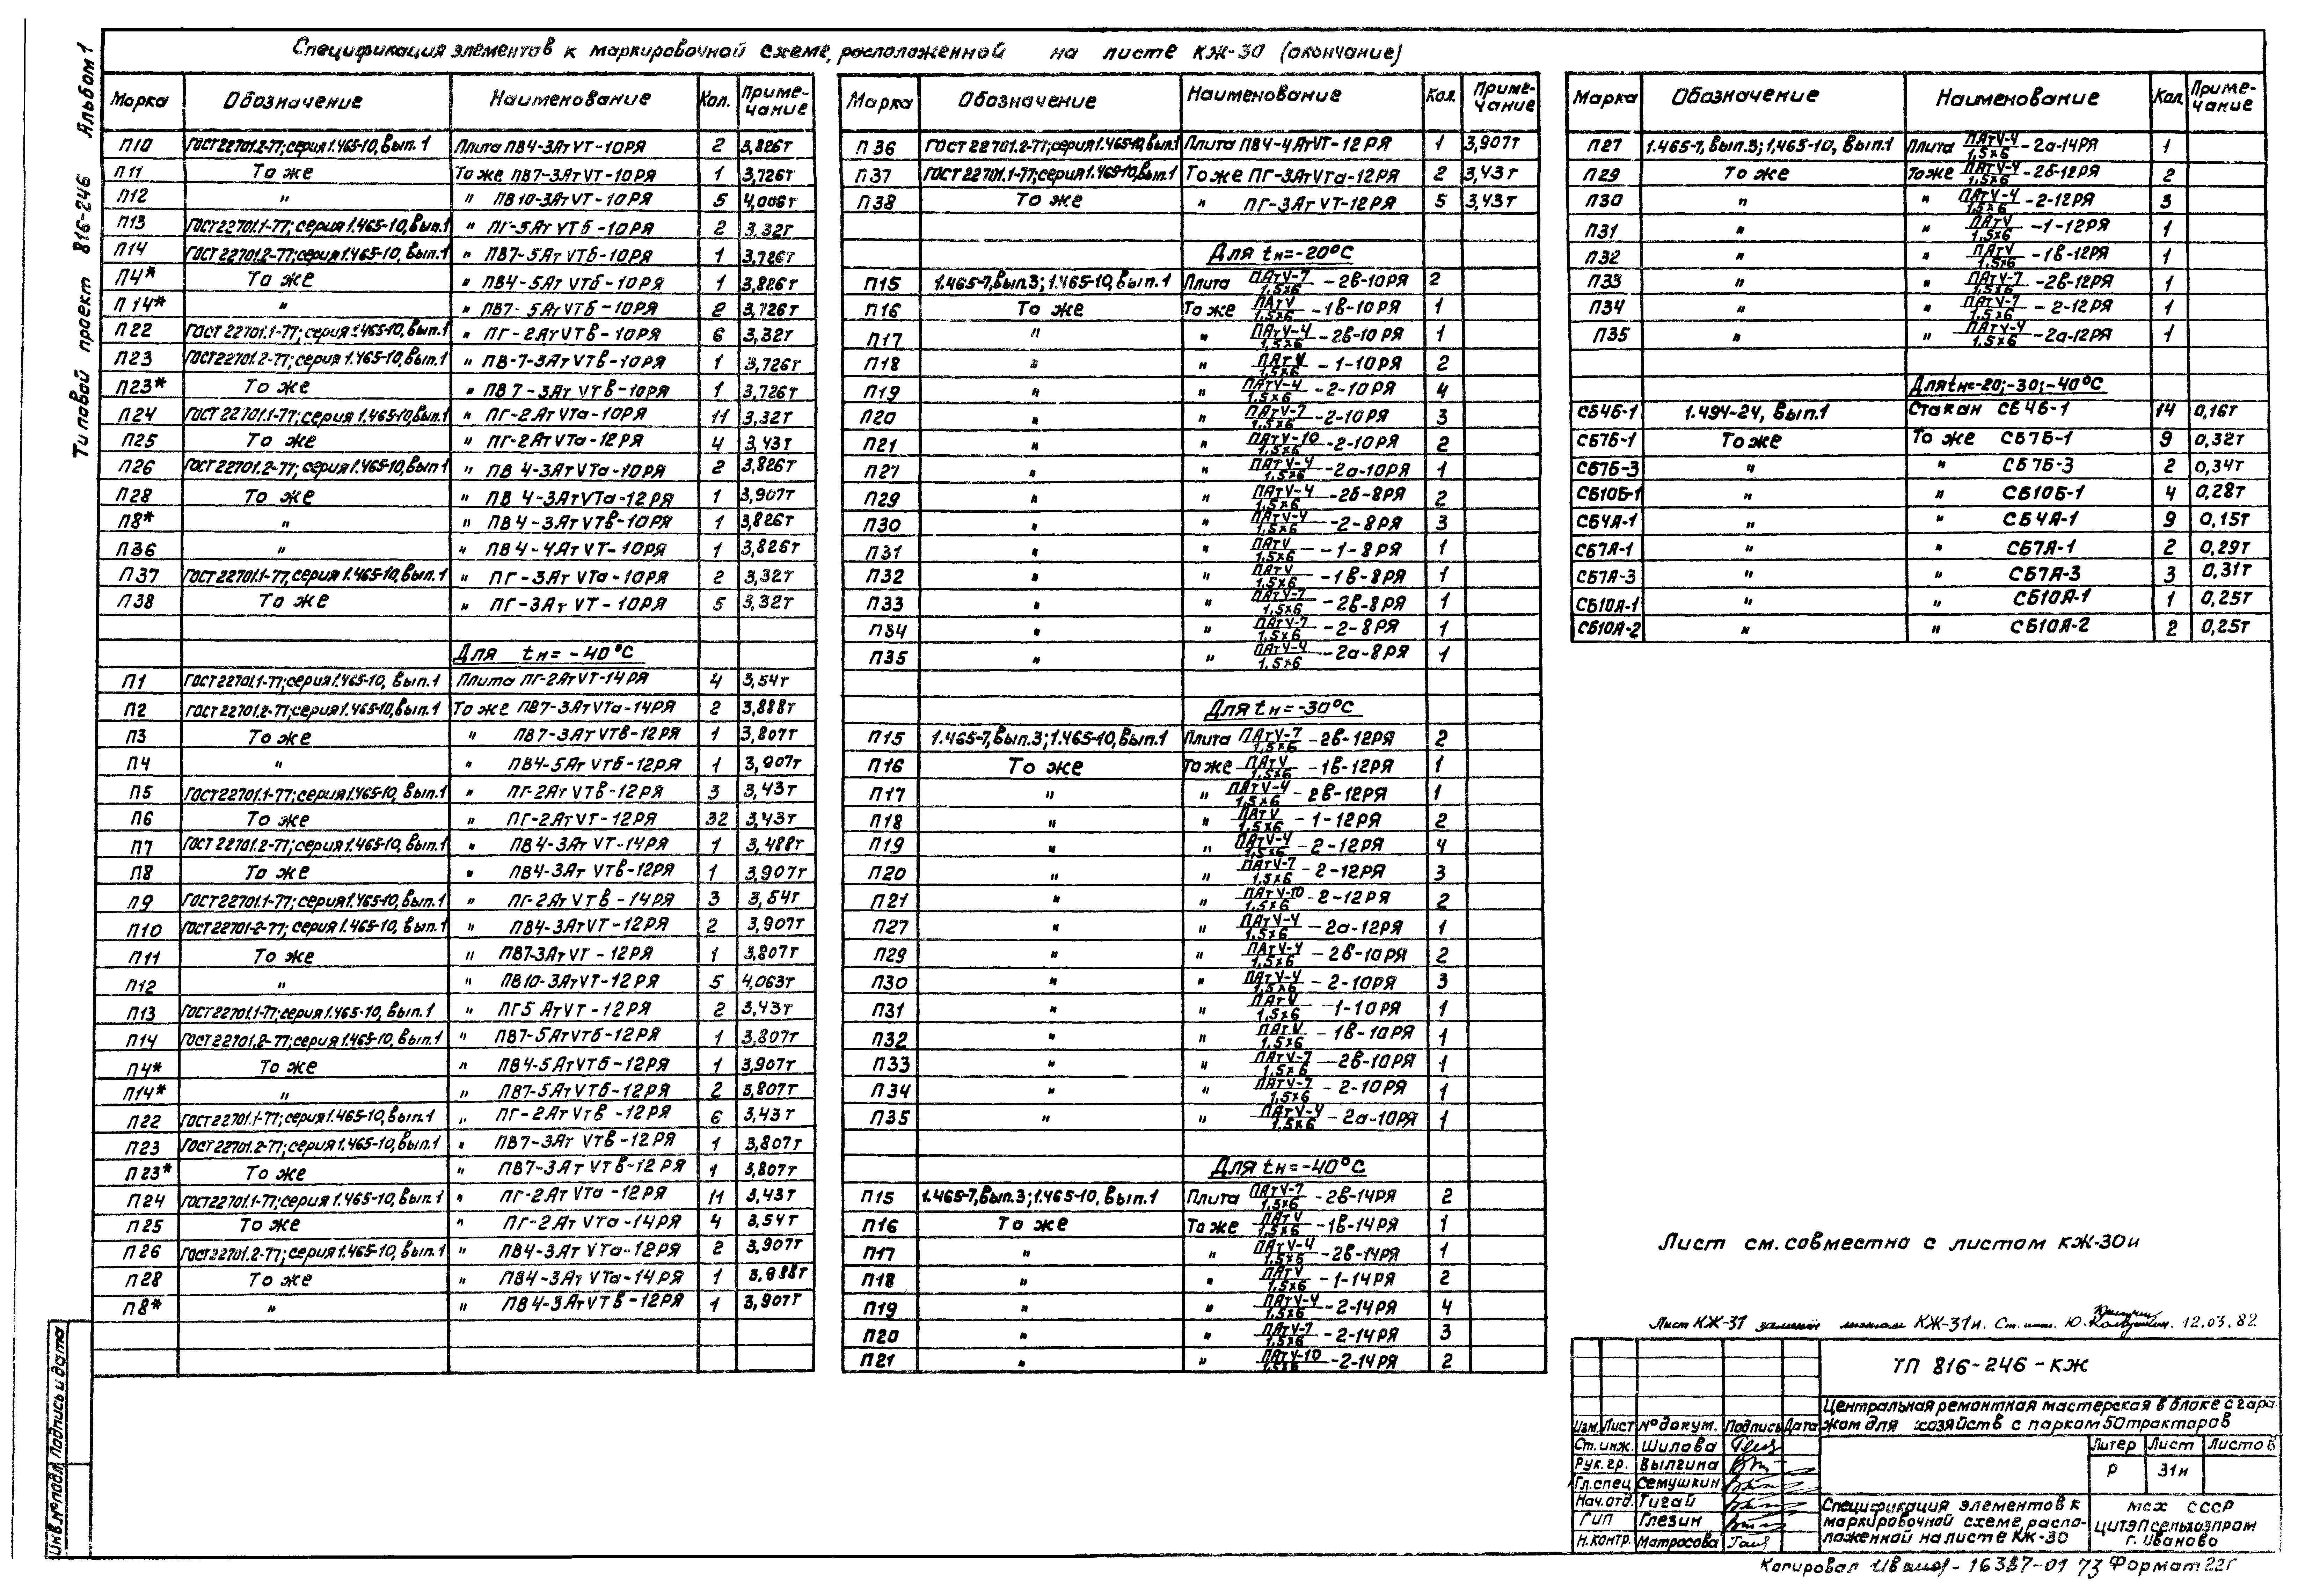 Типовой проект 816-246 Альбом 1
Спецификация элементов к маркировочной схеме, расположенной на листе КЖ-30 (окончание)
Марка Обозначение Наименование Кол. Приме-чание
П10 ГОСТ22701.2-77; серия 1.465-10, вып. 1 Плита ПВ4-3АтVТ-10РЯ 2 3,826т
П11 То же То же ПВ7-3АтVТ-10РЯ 1 3,726т
П12 " " ПВ10-3АтVТ-10РЯ 5 4,006т
П13 ГОСТ22701.1-77; серия 1.465-10, вып.1 " ПГ-5АтVТб-10РЯ 2 3,32т
П14 ГОСТ22701.2-77; серия 1.465-10, вып.1 " ПВ7-5АтVТб-10РЯ 1 3,726т
П4* То же " ПВ4-5АтVТб-10РЯ 1 3,826т
П14* " " ПВ7-5АтVТб-10РЯ 2 3,726т
П22 ГОСТ22701.1-77; серия 1.465-10, вып.1 " ПГ-2АтVТв-10РЯ 6 3,32т
П23 ГОСТ22701.2-77; серия 1.465-10, вып.1 " ПВ-7-3АтVТв-10РЯ 1 3,726т
П23* То же " ПВ7-3АтVТв-10РЯ 1 3,726т
П24 ГОСТ22701.1-77; серия 1.465-10, вып.1 " ПГ-2АтVТа-10РЯ 11 3,32т
П25 То же " ПГ-2АтVТа-12РЯ 4 3,43т
П26 ГОСТ22701.2-77; серия 1.465-10, вып 1 " ПВ4-3АтVТа-10РЯ 2 3,826т
П28 То же " ПВ4-3АтVТа-12РЯ 1 3,907т
П8* " " ПВ4-3АтVТв-10РЯ 1 3,826т
П36 " " ПВ4-4АтVТ-10РЯ 1 3,826т
П37 ГОСТ22701.1-77, серия 1.465-10, вып.1 " ПГ-3АтVТа-10РЯ 2 3,32т
П38 То же " ПГ-3АтVТ-10РЯ 5 3,32т
Для tн = -40°С
П1 ГОСТ22701.1-77; серия 1.465-10, вып.1 Плита ПГ-2АтVТ-14РЯ 4 3,54т
П2 ГОСТ22701.2-77; серия 1.465-10, вып.1 То же ПВ7-3АтVТа-14РЯ 2 3,888т
П3 То же " ПВ7-3АтVТв-12РЯ 1 3,807т
П4 " " ПВ4-5АтVТб-12РЯ 1 3,907т
П5 ГОСТ22701.1-77; серия 1.465-10, вып.1 " ПГ-2АтVТв-12РЯ 3 3,43т
П6 То же " ПГ-2АтVТ-12РЯ 32 3,43т
П7 ГОСТ22701.2-77; серия 1.465-10, вып.1 " ПВ4-3АтVТ-14РЯ 1 3,488т
П8 То же " ПВ4-3АтVТв-12РЯ 1 3,907т
П9 ГОСТ22701.1-77; серия 1.465-10, вып.1 " ПГ-2АтVТв-14РЯ 3 3,54т
П10 ГОСТ22701-2-77; серия 1.465-10, вып.1 " ПВ4-3АтVТ-12РЯ 2 3,907т
П11 То же " ПВ7-3АтVТ-12РЯ 1 3,807т
П12 " " ПВ10-3АтVТ-12РЯ 5 4,063т
П13 ГОСТ22701.1-77; серия 1.465-10, вып.1 " ПГ5АтVТ-12РЯ 2 3,43т
П14 ГОСТ22701.2-77; серия 1.465-10, вып.1 " ПВ7-5АтVТб-12РЯ 1 3,807т
П4* То же " ПВ4-5АтVТб-12РЯ 1 3,907т
П14* " " ПВ7-5АтVТб-12РЯ 2 3,807т
П22 ГОСТ22701.1-77; серия 1.465-10, вып.1 " ПГ-2АтVТв-12РЯ 6 3,43т
П23 ГОСТ22701.2-77; серия 1.465-10, вып.1 " ПВ7-3АтVТв-12РЯ 1 3,807т
П23* То же " ПВ7-3АтVТв-12РЯ 1 3,807т
П24 ГОСТ22701.1-77; серия 1.465-10, вып.1 " ПГ-2АтVТа-12РЯ 11 3,43т
П25 То же " ПГ-2АтVТа-14РЯ 4 3,54т
П26 ГОСТ22701.2-77; серия 1.465-10, вып.1 " ПВ4-3АтVТа-12РЯ 2 3,907т
П28 То же " ПВ4-3АтVТа-14РЯ 1 3,988т
П8* " " ПВ4-3АтVТв-12РЯ 1 3,907т
Марка Обозначение Наименование Кол. Приме-чание
П36 ГОСТ22701.2-77; серия 1.465-10, вып.1 Плита ПВ4-4АтVТ-12РЯ 1 3,907т
П37 ГОСТ22701.1-77; серия 1.465-10, вып.1 То же ПГ-3АтVТа-12РЯ 2 3,43т
П38 То же " ПГ-3АтVТ-12РЯ 5 3,43т
Для tн = -20°С
П15 1.465-7, вып.3; 1.465-10, вып.1 Плита ПАтV-7/1,5х6 -2в-10РЯ 2
П16 То же То же ПАтV/1,5х6 -1в-10РЯ 1
П17 " " ПАтV-4/1,5х6 -2в-10РЯ 1
П18 " " ПАтV/1,5х6 -1-10РЯ 2
П19 " " ПАтV-4/1,5х6 -2-10РЯ 4
П20 " " ПАтV-7/1,5х6 -2-10РЯ 3
П21 " " ПАтV-10/1,5х6 -2-10РЯ 2
П27 " " ПАтV-4/1,5х6 -2а-10РЯ 1
П29 " " ПАтV-4/1,5х6 -2б-8РЯ 2
П30 " " ПАтV-4/1,5х6 -2-8РЯ 3
П31 " " ПАтV/1,5х6 -1-8РЯ 1
П32 " " ПАтV/1,5х6 -1в-8РЯ 1
П33 " " ПАтV-7/1,5х6 -2в-8РЯ 1
П34 " " ПАтV-7/1,5х6 -2-8РЯ 1
П35 " " ПАтV-4/1,5х6 -2а-8РЯ 1
Для tн = -30°С
П15 1.465-7, вып.3; 1.465-10, вып.1 Плита ПАтV-7/1,5х6 -2в-12РЯ 2
П16 То же То же ПАтV/1,5х6 -1в-12РЯ 1
П17 " " ПАтV-4/1,5х6 -2в-12РЯ 1
П18 " " ПАтV/1,5х6 -1-12РЯ 2
П19 " " ПАтV-4/1,5х6 -2-12РЯ 4
П20 " " ПАтV-7/1,5х6 -2-12РЯ 3
П21 " " ПАтV-10/1,5х6 -2-12РЯ 2
П27 " " ПАтV-4/1,5х6 -2а-12РЯ 1
П29 " " ПАтV-4/1,5х6 -2б-10РЯ 2
П30 " " ПАтV-4/1,5х6 -2-10РЯ 3
П31 " " ПАтV/1,5х6 -1-10РЯ 1
П32 " " ПАтV/1,5х6 -1в-10РЯ 1
П33 " " ПАтV-7/1,5х6 -2в-10РЯ 1
П34 " " ПАтV-7/1,5х6 -2-10РЯ 1
П35 " " ПАтV-4/1,5х6 -2а-10РЯ 1
Для tн = -40°С
П15 1.465-7, вып.3; 1.465-10, вып.1 Плита ПАтV-7/1,5х6 -2в-14РЯ 2
П16 То же То же ПАтV/1,5х6 -1в-14РЯ 1
П17 " " ПАтV-4/1,5х6 -2в-14РЯ 1
П18 " " ПАтV/1,5х6 -1-14РЯ 2
П19 " " ПАтV-4/1,5х6 -2-14РЯ 4
П20 " " ПАтV-7/1,5х6 -2-14РЯ 3
П21 " " ПАтV-10/1,5х6 -2-14РЯ 2
Марка Обозначение Наименование Кол. Приме-чание
П27 1.465-7, вып.3; 1,465-10, вып.1 Плита ПАтV-4/1,5х6 -2а-14РЯ 1
П29 То же То же ПАтV-4/1,5х6 -2б-12РЯ 2
П30 " " ПАтV-4/1,5х6 -2-12РЯ 3
П31 " " ПАтV/1,5х6 -1-12РЯ 1
П32 " " ПАтV/1,5х6 -1в-12РЯ 1
П33 " " ПАтV-7/1,5х6 -2в-12РЯ 1
П34 " " ПАтV-7/1,5х6 -2-12РЯ 1
П35 " " ПАтV-4/1,5х6 -2а-12РЯ 1
Для tн=-20;-30;-40°С
СБ4Б-1 1.494-24, вып.1 Стакан СБ4Б-1 14 0,16т
СБ7Б-1 То же То же СБ7Б-1 9 0,32т
СБ7Б-3 " " СБ7Б-3 2 0,34т
СБ10Б-1 " " СБ10Б-1 4 0,28т
СБ4А-1 " " СБ4А-1 9 0,15т
СБ7А-1 " " СБ7А-1 2 0,29т
СБ7А-3 " " СБ7А-3 3 0,31т
СБ10А-1 " " СБ10А-1 1 0,25т
СБ10А-2 " " СБ10А-2 2 0,25т
Лист см. совместно с листом КЖ-30и
Лист КЖ-31 заменен листом КЖ-31и. Ст. инж. Ю. 12.03.82
ТП 816-246-КЖ
Центральная ремонтная мастерская в блоке с гара-
жом для хозяйств с парком 50 тракторов
Изм. Лист № докум. Подпись Дата
Ст. инж. Шилова
Рук. гр. Вылгина
Гл. спец Семушкин
Нач. отд. Тигай
ГИП Глезин
Н. контр. Матросова
Литер Лист Листов
Р 31и
Спецификация элементов к
маркировочной схеме, распо-
ложенной на листе КЖ-30
МСХ СССР
ЦИТЭПсельхозпром
г. Иваново
Инв. № подл. Подпись и дата
Копировал 16387-01 73 Формат 22г